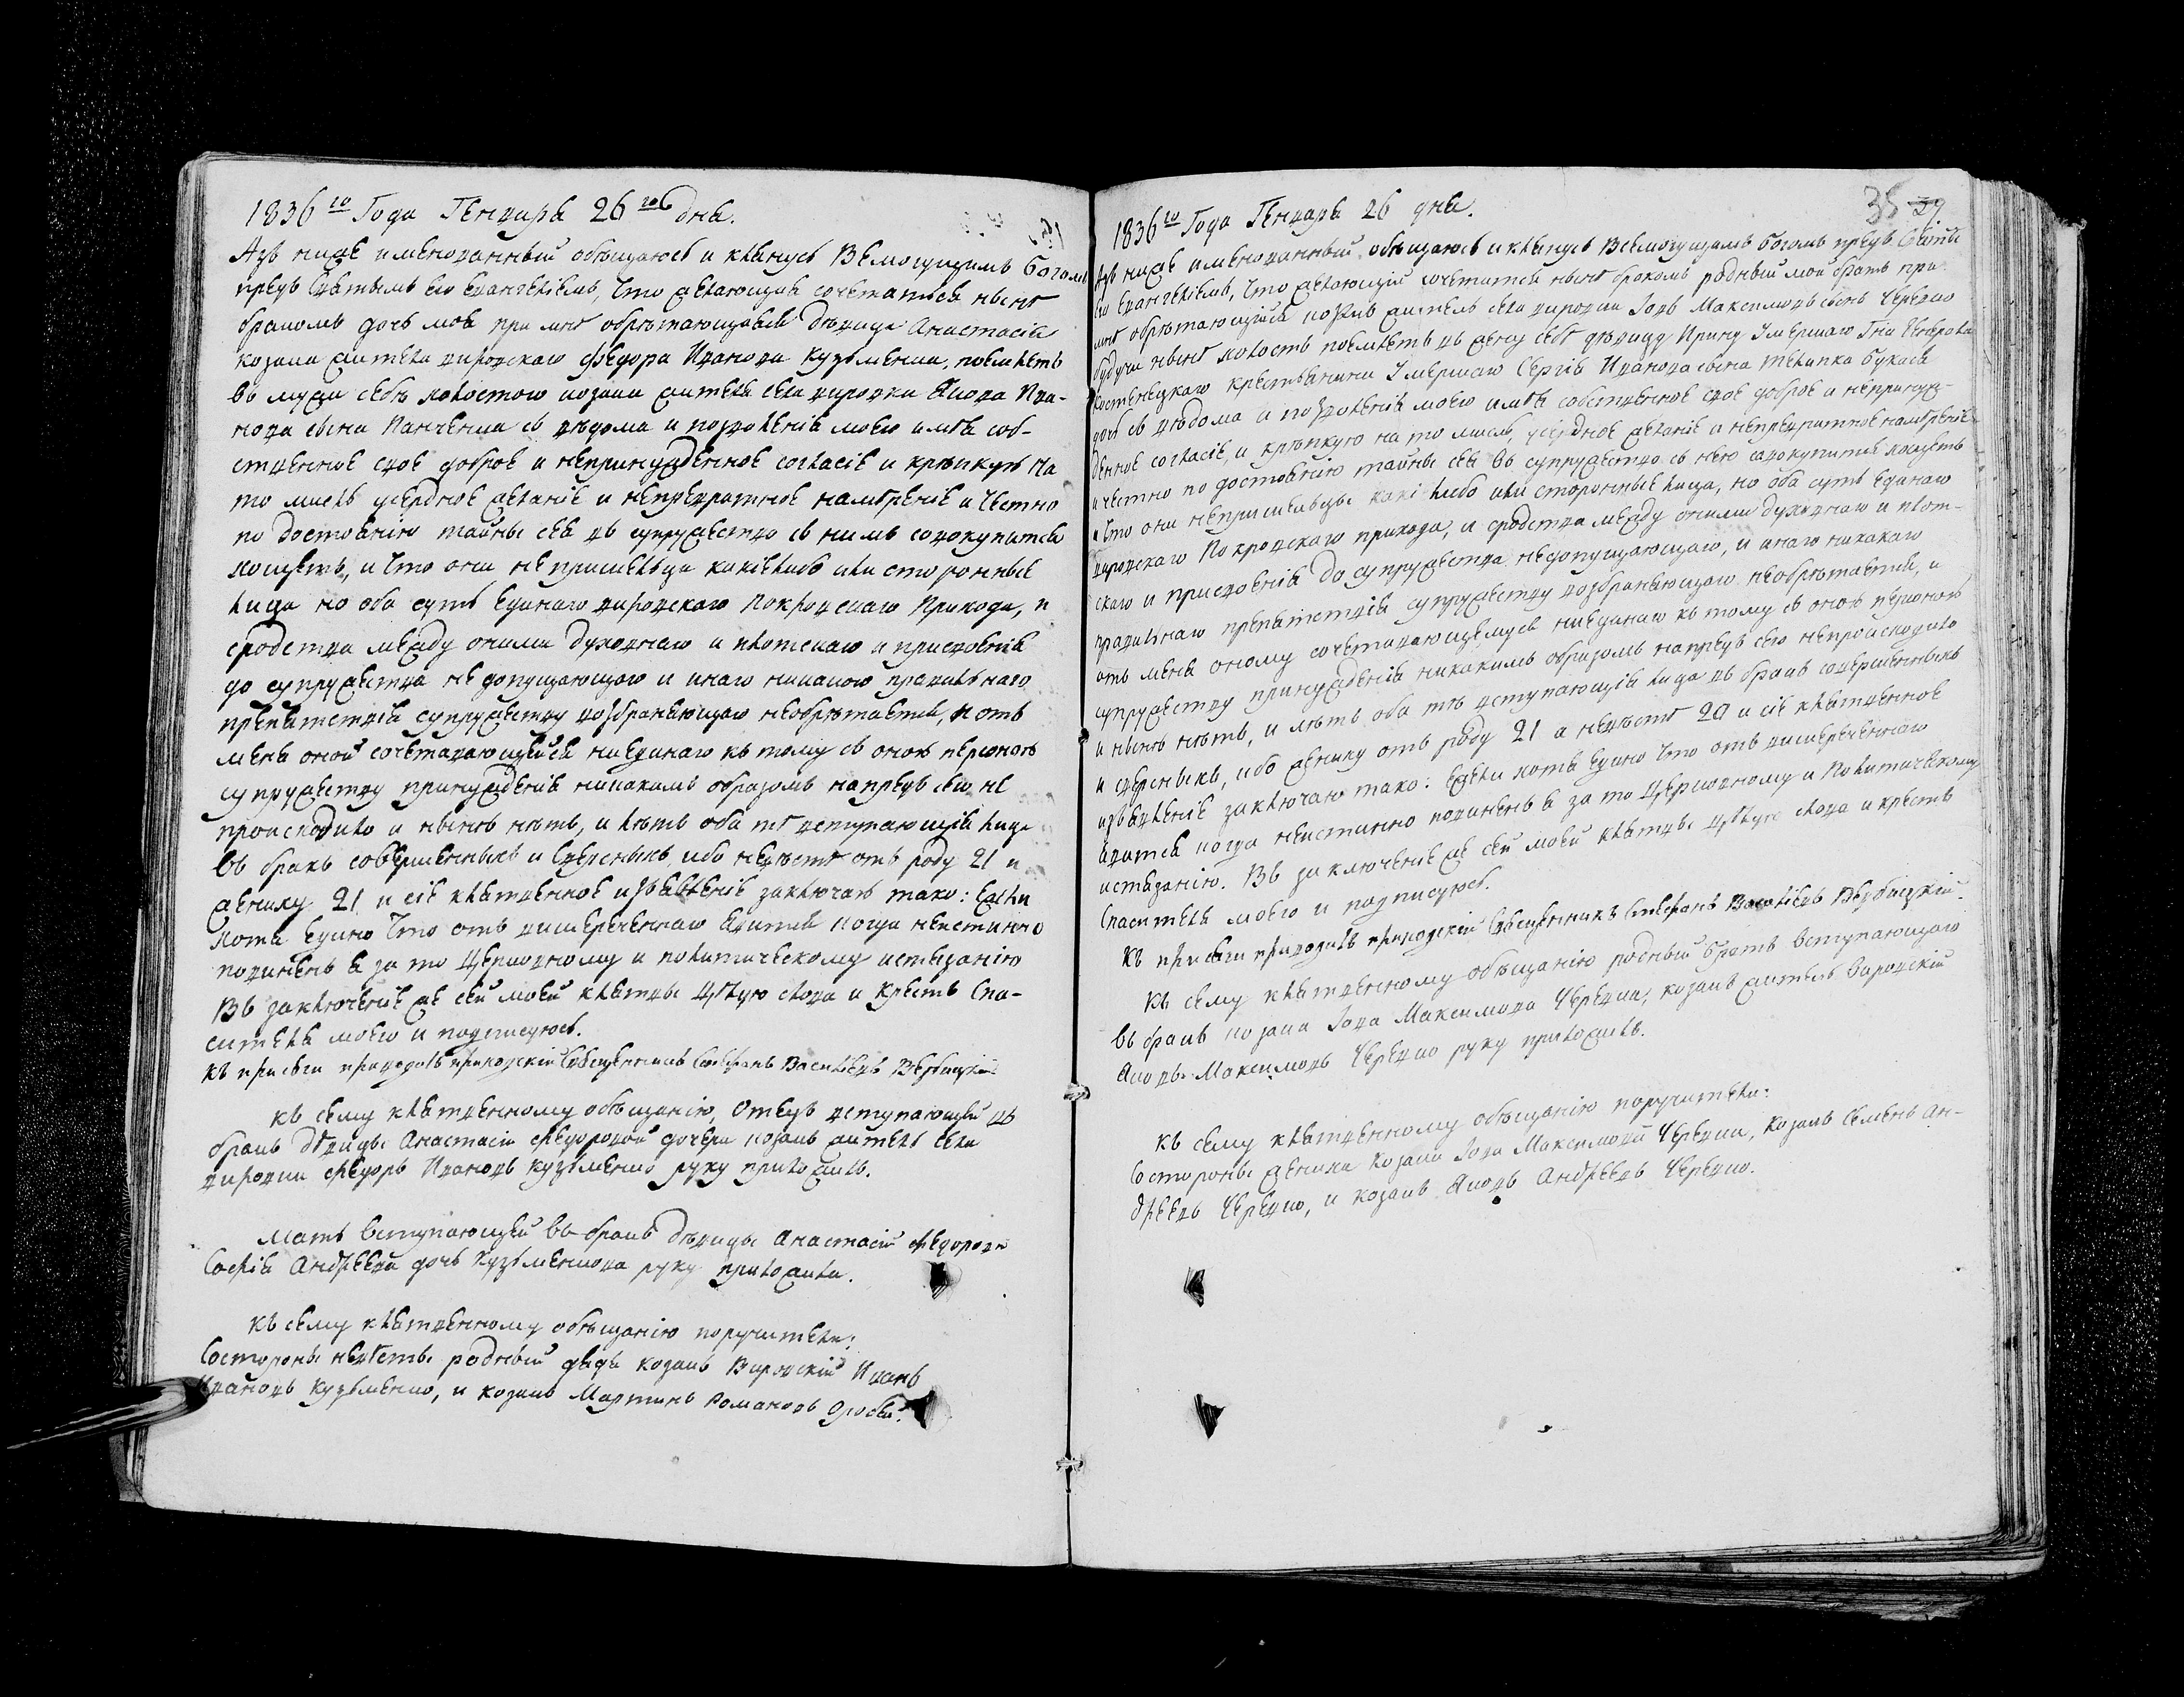 1836го Года Генваря 26го дня.
Азъ ниже именованный обѣщаюсь и клянусь Всемогущимъ Богомъ
предъ Святымъ его Евангелиемъ, что желающая сочетатися нынѣ
бракомъ дочь моя при мнѣ обрѣтающаяся дѣвица Анастасія
козака жителя вировскаго Федора Иванова Кузьменка, поемлетъ
въ мужа себѣ холостого козака жителя села вировки Якова Ива-
нова сына Панченка съ вѣдома и позволенія моего имѣя соб-
ственное свое доброе и непринужденное согласіе и крѣпкую на
то мысль усердное желаніе и непревратное намѣреніе и честно
по достоянію тайны сея въ супружество съ нимъ совокупитися
хощетъ, и что они не пришельцы какіе либо или сторонные
лица но оба суть единаго вировскаго Покровскаго Прихода, и
сродства между оними духовнаго и плотскаго и присвоенія
до супружества не допущающаго и инаго никакого правильнаго
препятствія супружеству возбраняющаго необрѣтается, и отъ
меня оной сочетавающейся ниединаго къ тому съ оною персоною
супружеству принужденія никакимъ образомъ напредъ сего не
происходило и нынѣ нѣтъ, и лѣтъ оба тѣ вступающія лица
въ бракъ совершенныхъ и сверсныхъ, ибо невѣстѣ отъ роду 21 и
жениху 21, и сіе клятвенное изъявленіе заключаю тако: Если
хотя едино что отъ вишереченнаго явится когда неистинно
повиненъ я за то Церковному и политическому истязанію
Въ заключеніе же сей моей клятвы цѣлую слова и Крестъ Спа-
сителя моего и подписуюсь.
Къ присяги приводилъ приходскій Священникъ Стефанъ Васильевъ Вербицкій
Къ сему клятвенному обѣщанію, Отецъ вступающей въ
бракъ дѣвицы Анастасіи Федоровой дочери козакъ житель села
вировки Федоръ Ивановъ Кузьменко руку приложилъ.
Мать вступающей въ бракъ дѣвицы Анастасіи Федоровой
Софія Андреева дочь Кузьменкова руку приложила.
Къ сему клятвенному обѣщанію поручители:
Состороны невѣсты родный дядя козакъ Вировскій Иванъ
Ивановъ Кузьменко, и козакъ Мартинъ Романовъ
35 29
1836го Года Генваря 26 дня.
Азъ ниже именованный обѣщаюсь и клянусь Всемогущимъ Богомъ предъ Святымъ
его Евангеліемъ, что желающій сочетатися нынѣ бракомъ родный мой братъ при
мнѣ обрѣтающійся козакъ житель села вировки Іовъ Максимовъ сынъ Черевко
будучи нынѣ холостъ поемлетъ въ жену себѣ дѣвицу Ирину Умершаго Гна
крестьянина Умершаго Сергія Иванова сына
дочь съ вѣдома и позволенія моего имѣя собственное свое доброе и непринуж-
денное согласіе, и крѣпкую на то мысль, усердное желаніе и непревратное намѣреніе
и честно по достоянію тайны сея въ супружество съ нею совокупитися хощетъ
и что они непришельцы какі либо или сторонные лица, но оба суть единаго
вировскаго Покровскаго прихода, и сродства между оними духовнаго и плот-
скаго и присвоенія до супружества недопущающаго, и инаго никакаго
правильнаго препятствія супружеству возбраняющаго необрѣтается, и
отъ меня оному сочетавающемуся ниединаго къ тому съ оною персоною
супружеству принужденія никакимъ образомъ напредъ сего непроисходило
и нынѣ нѣтъ, и лѣтъ оба тѣ вступающія лица въ бракъ совершенныхъ
и сверсныхъ, ибо жениху отъ роду 21 а невѣстѣ 20 и сіе клятвенное
изъявленіе заключаю тако: Если хотя едино что отъ вишереченнаго
явится когда неистинно повиненъ я за то Церковному и Политическому
истязанію. Въ заключеніе же сей моей клятвы цѣлую слова и крестъ
Спасителя моего и подписуюсь.
Къ присяги приводилъ приходскій Священникъ Стефанъ Васильевъ Вербицкій.
Къ сему клятвенному обѣщанію родный братъ вступающаго
въ бракъ козака Іова Максимова Черевка, козакъ житель Вировскій
Яковъ Максимовъ Черевко руку приложилъ.
Къ сему клятвенному обѣщанію поручители:
Состороны жениха козака Іова Максимова Черевка, козакъ Семенъ Ан-
дреевъ Черевко, и козакъ Яковъ Андреевъ Черевко.